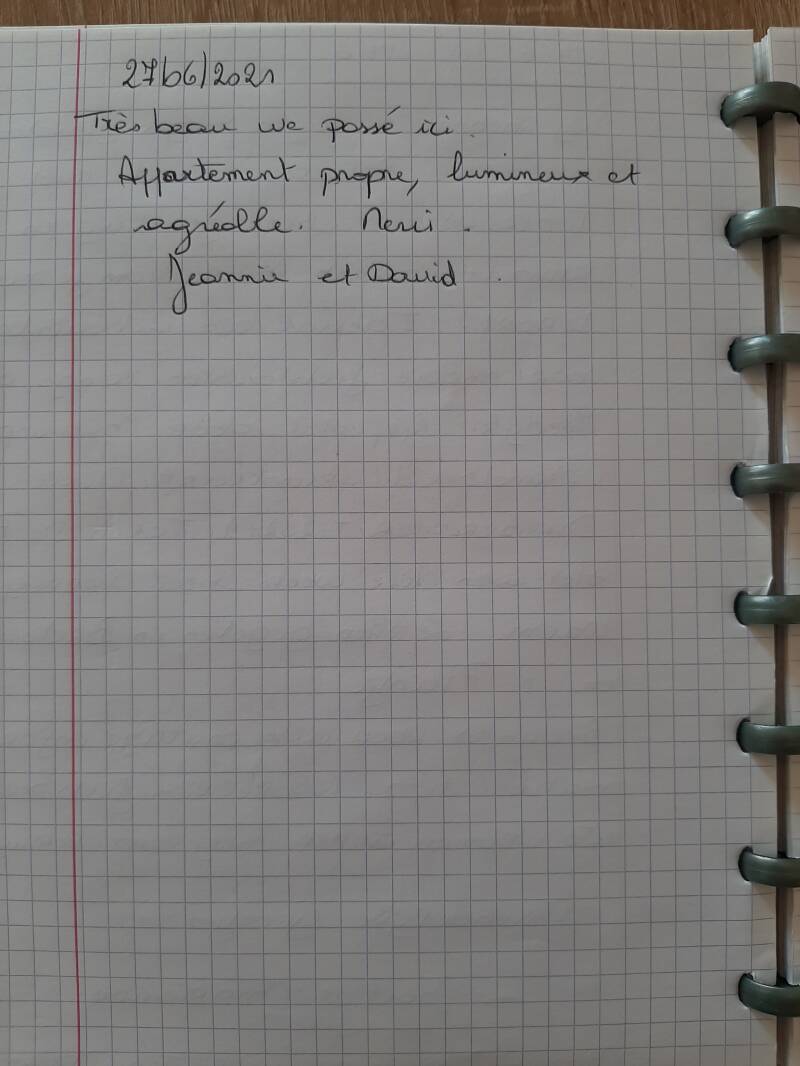 27/06/2021
Très beau we passé ici.
Appartement propre, lumineux et
agréable. Merci.
Jeannie et David.